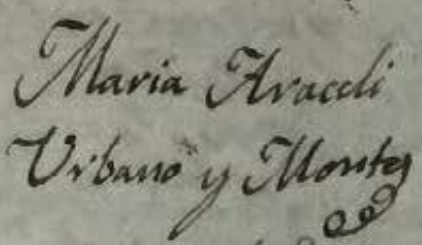 Maria Araceli
Urbano y Montes